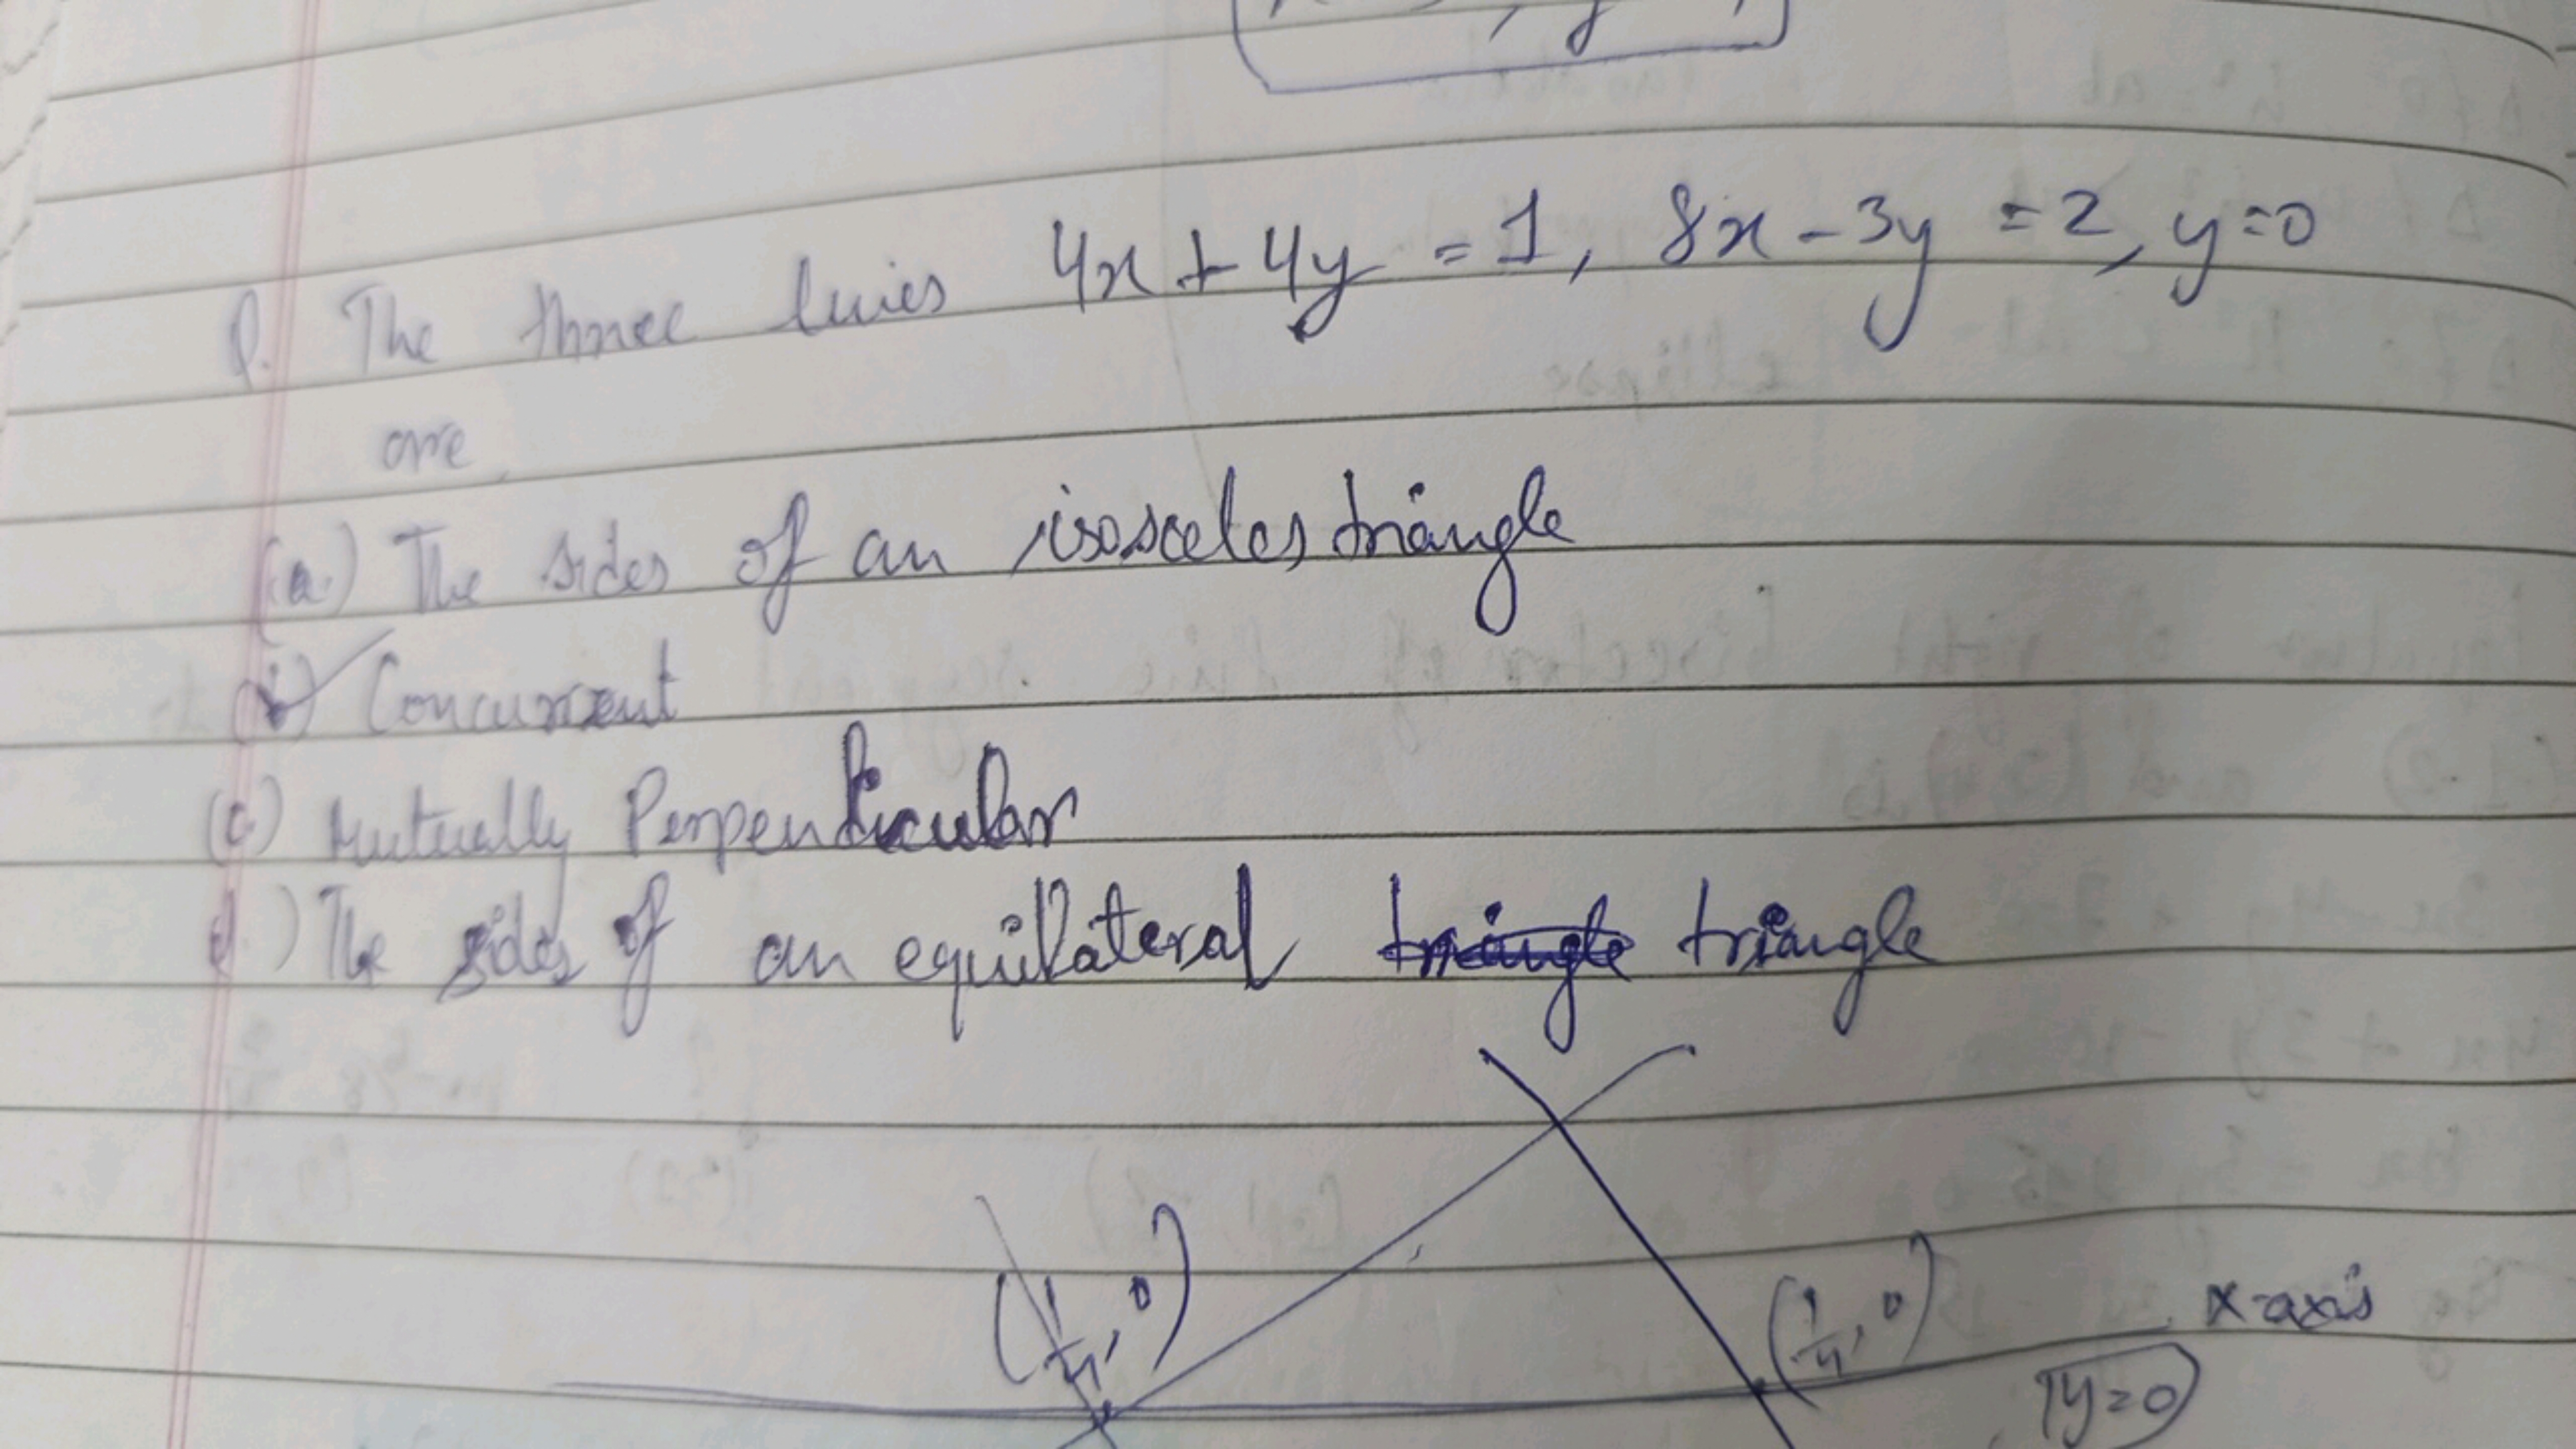 Q. The three lines 4x + 4y = 1, 8x - 3y = 2, y=0
are
(a.) The sides of an isosceles triangle
(b) Concurrent
(c) Mutually Perpendicular
d.) The sides of an equilateral triangle
(1/4, 0)
(1/4, 0)
x-axis
y=0